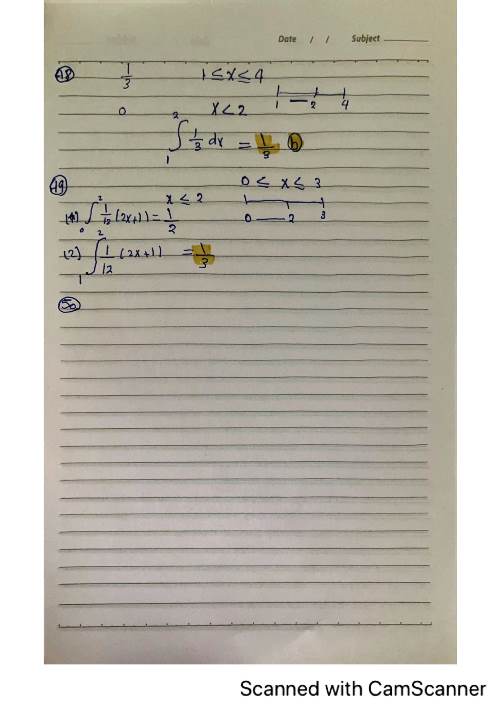 Date / / Subject
48 1/3 1 ≤ x ≤ 4
1 2 4
0 x < 2
∫₁² 1/3 dx = 1/3 b
49 x ≤ 2 0 ≤ x ≤ 3
(1) ∫₀² 1/12 (2x+1) = 1/2 0 2 3
(2) ∫₁² 1/12 (2x+1) = 1/3
50
Scanned with CamScanner